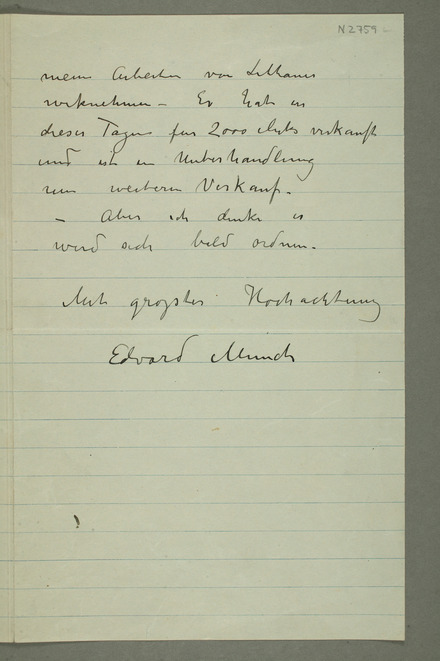 N 2759
meine Arbeiten von
– Er hat in
dieser Tagen für 2000 Mark verkauft
und ist in Unterhandlung
um weiteren Verkauf.
– Aber ich denke es
wird sich bald ordnen.
Mit grosster Hochachtung
Edvard Munch